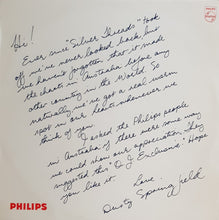 Hi!
Ever since "Silver Threads" took
off we've never looked back, but
we haven't forgotten that it made
the charts in Australia before any
other country in the World. So
naturally we've got a real warm
spot in our heart whenever we
think of you.
I asked the Philips people
in Australia if there were some way
we could show our appreciation. They
suggested this "D.J. Exclusive". Hope
you like it.
Love
Dusty Springfield
PHILIPS
PHILIPS